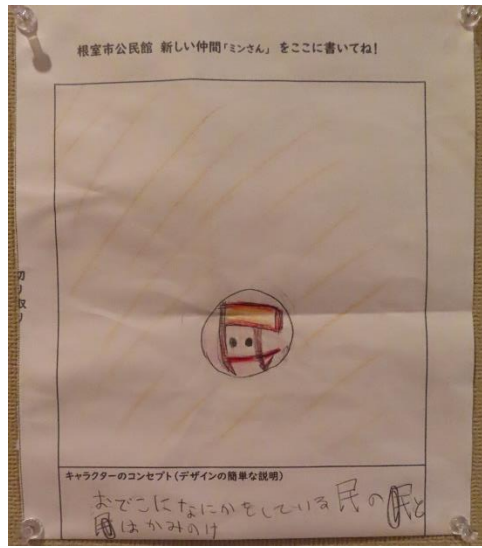 根室市公民館 新しい仲間「ミンさん」 をここに書いてね!
切り取り
キャラクターのコンセプト(デザインの簡単な説明)
おでこになにかをしている民の民と
はかみのけ